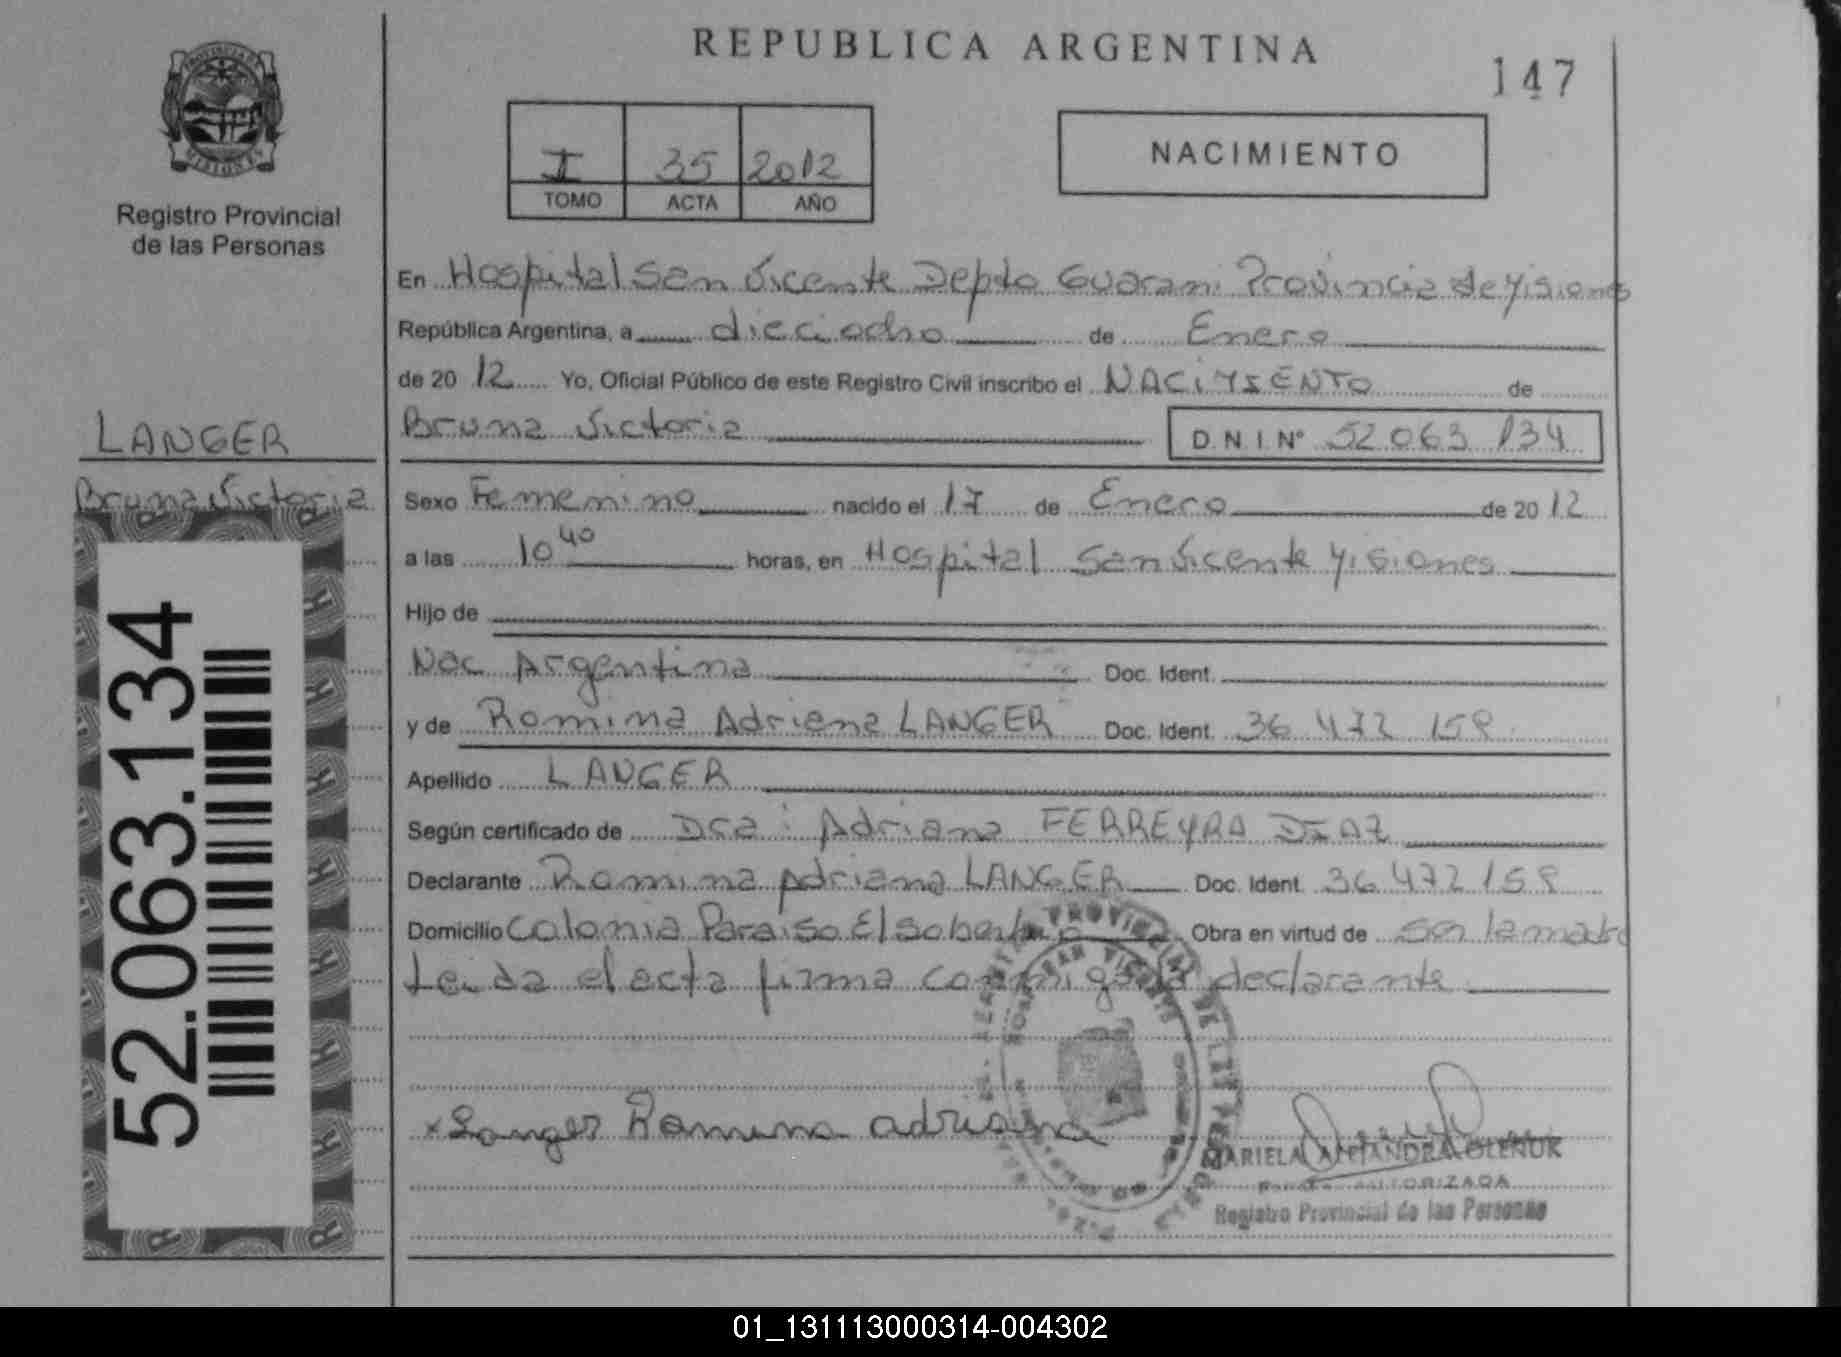 REPUBLICA ARGENTINA
147
PROVINCIA DE
MISIONES
Registro Provincial
de las Personas
I 35 2012
TOMO ACTA AÑO
NACIMIENTO
En Hospital San Vicente Depto Guarani Provincia de Misiones
República Argentina, a dieciocho de Enero
de 20 12 Yo, Oficial Público de este Registro Civil inscribo el NACIMIENTO de
Bruna Victoria D.N.I.Nº 52 063 134
LANGER
Bruna Victoria
Sexo Femenino nacido el 17 de Enero de 20 12
a las 10 40 horas, en Hospital San Vicente Misiones
Hijo de
Nac Argentina Doc. Ident.
y de Romina Adriana LANGER Doc. Ident. 36 472 158
Apellido LANGER
Según certificado de Dra: Adriana FERREYRA DIAZ
Declarante Romina Adriana LANGER Doc. Ident. 36 472 158
Domicilio Colonia Paraiso El soberbio Obra en virtud de ser la madre
Leida el acta firma conmigo la declarante
x Langer Romina adriana
MARIELA ALEJANDRA OLENUK
FIRMA AUTORIZADA
Registro Provincial de las Personas
52.063.134
01_131113000314-004302